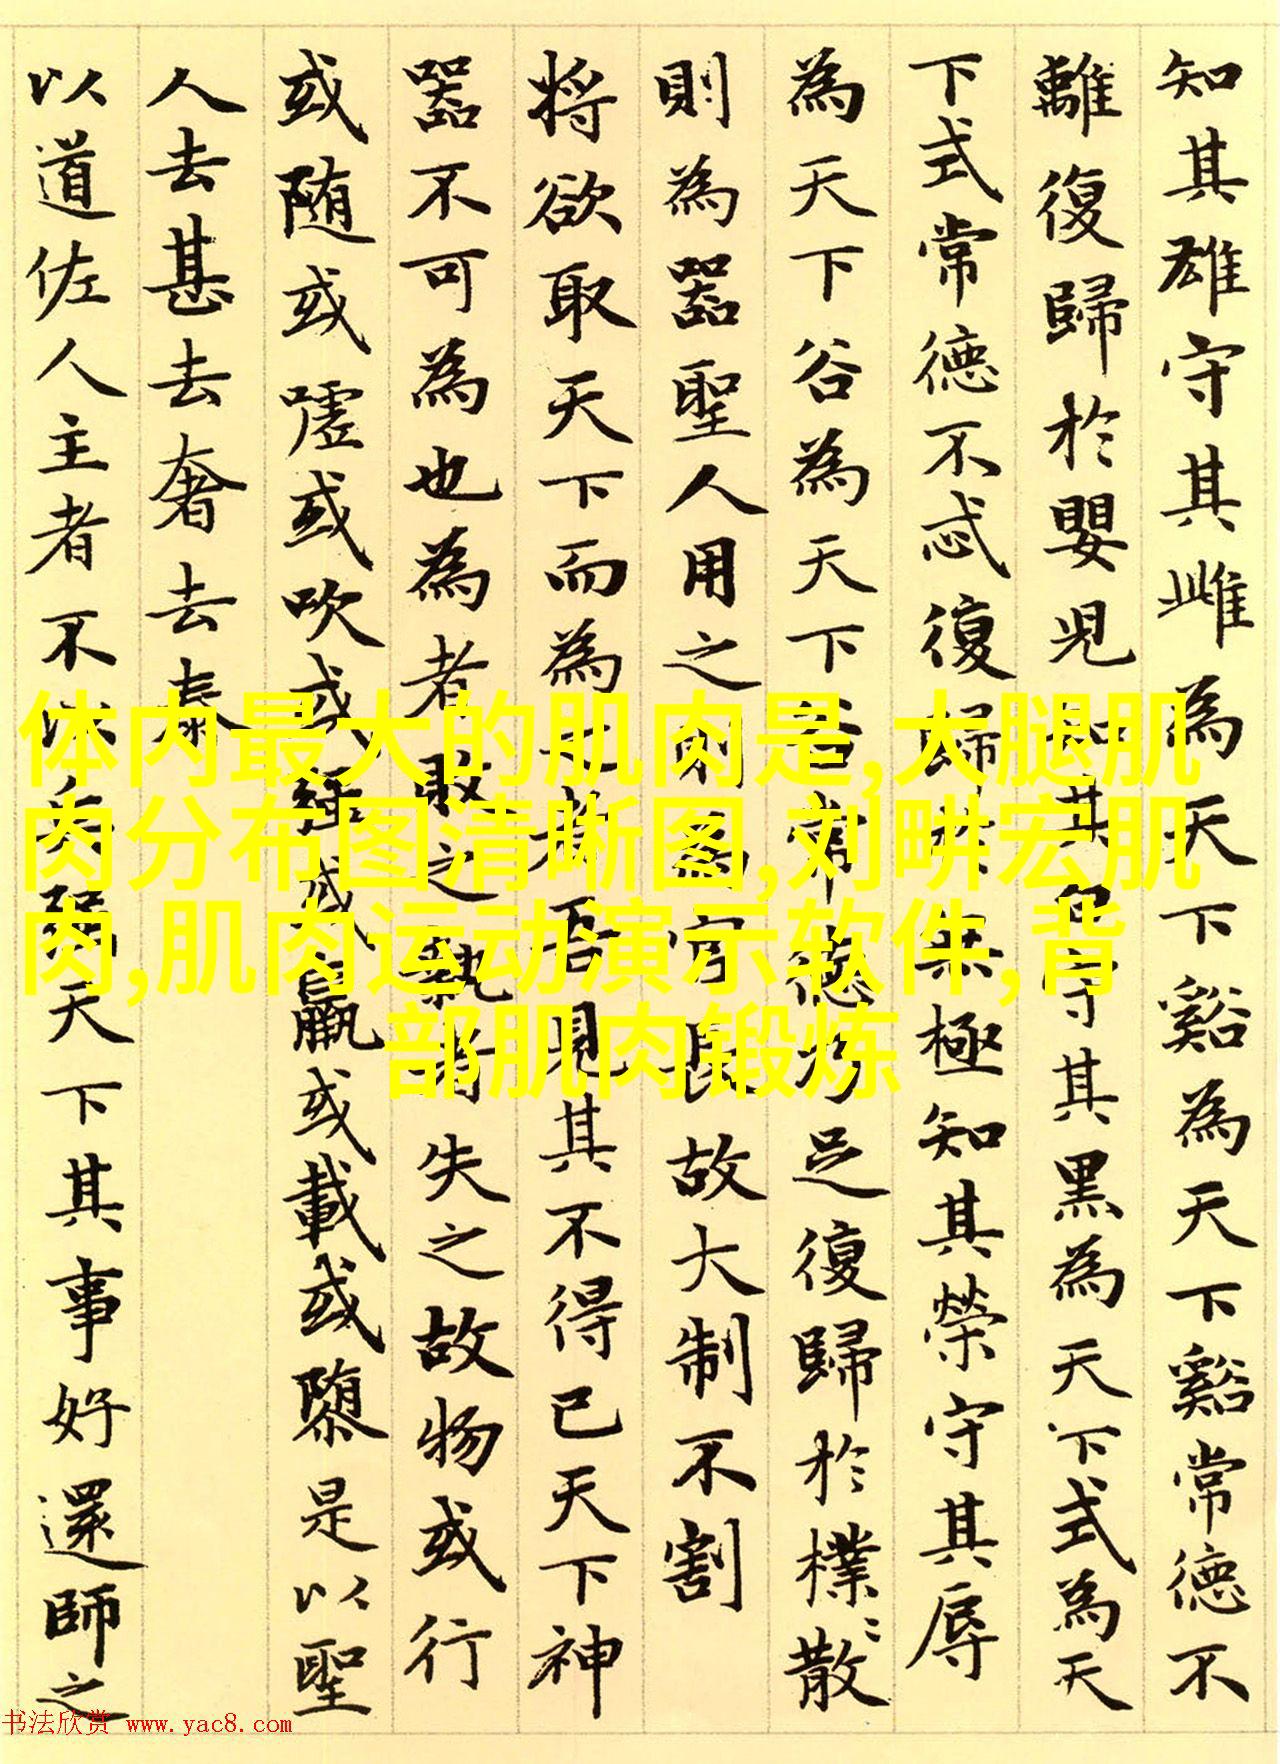 知其雄守其雌為天下谿為天下谿常德不
離復歸於嬰兒知其白守其黑為天下式為天
下式常德不忒復歸於無極知其榮守其辱
為天下谷為天下谷常德乃足復歸於樸〻散
則為器聖人用之則為官長故大制不割
将欲取天下而為之者吾見其不得已天下神
器不可為也為者敗之執者失之故物或行
或随或嘘或吹或強或羸或載或隳是以聖
人去甚去奢去泰
以道佐人主者不以兵强天下其事好還師之
体内最大的肌肉是,大腿肌
肉分布图清晰图,刘畊宏肌
肉,肌肉运动演示软件,背
部肌肉锻炼
书法欣赏 www.yac8.com